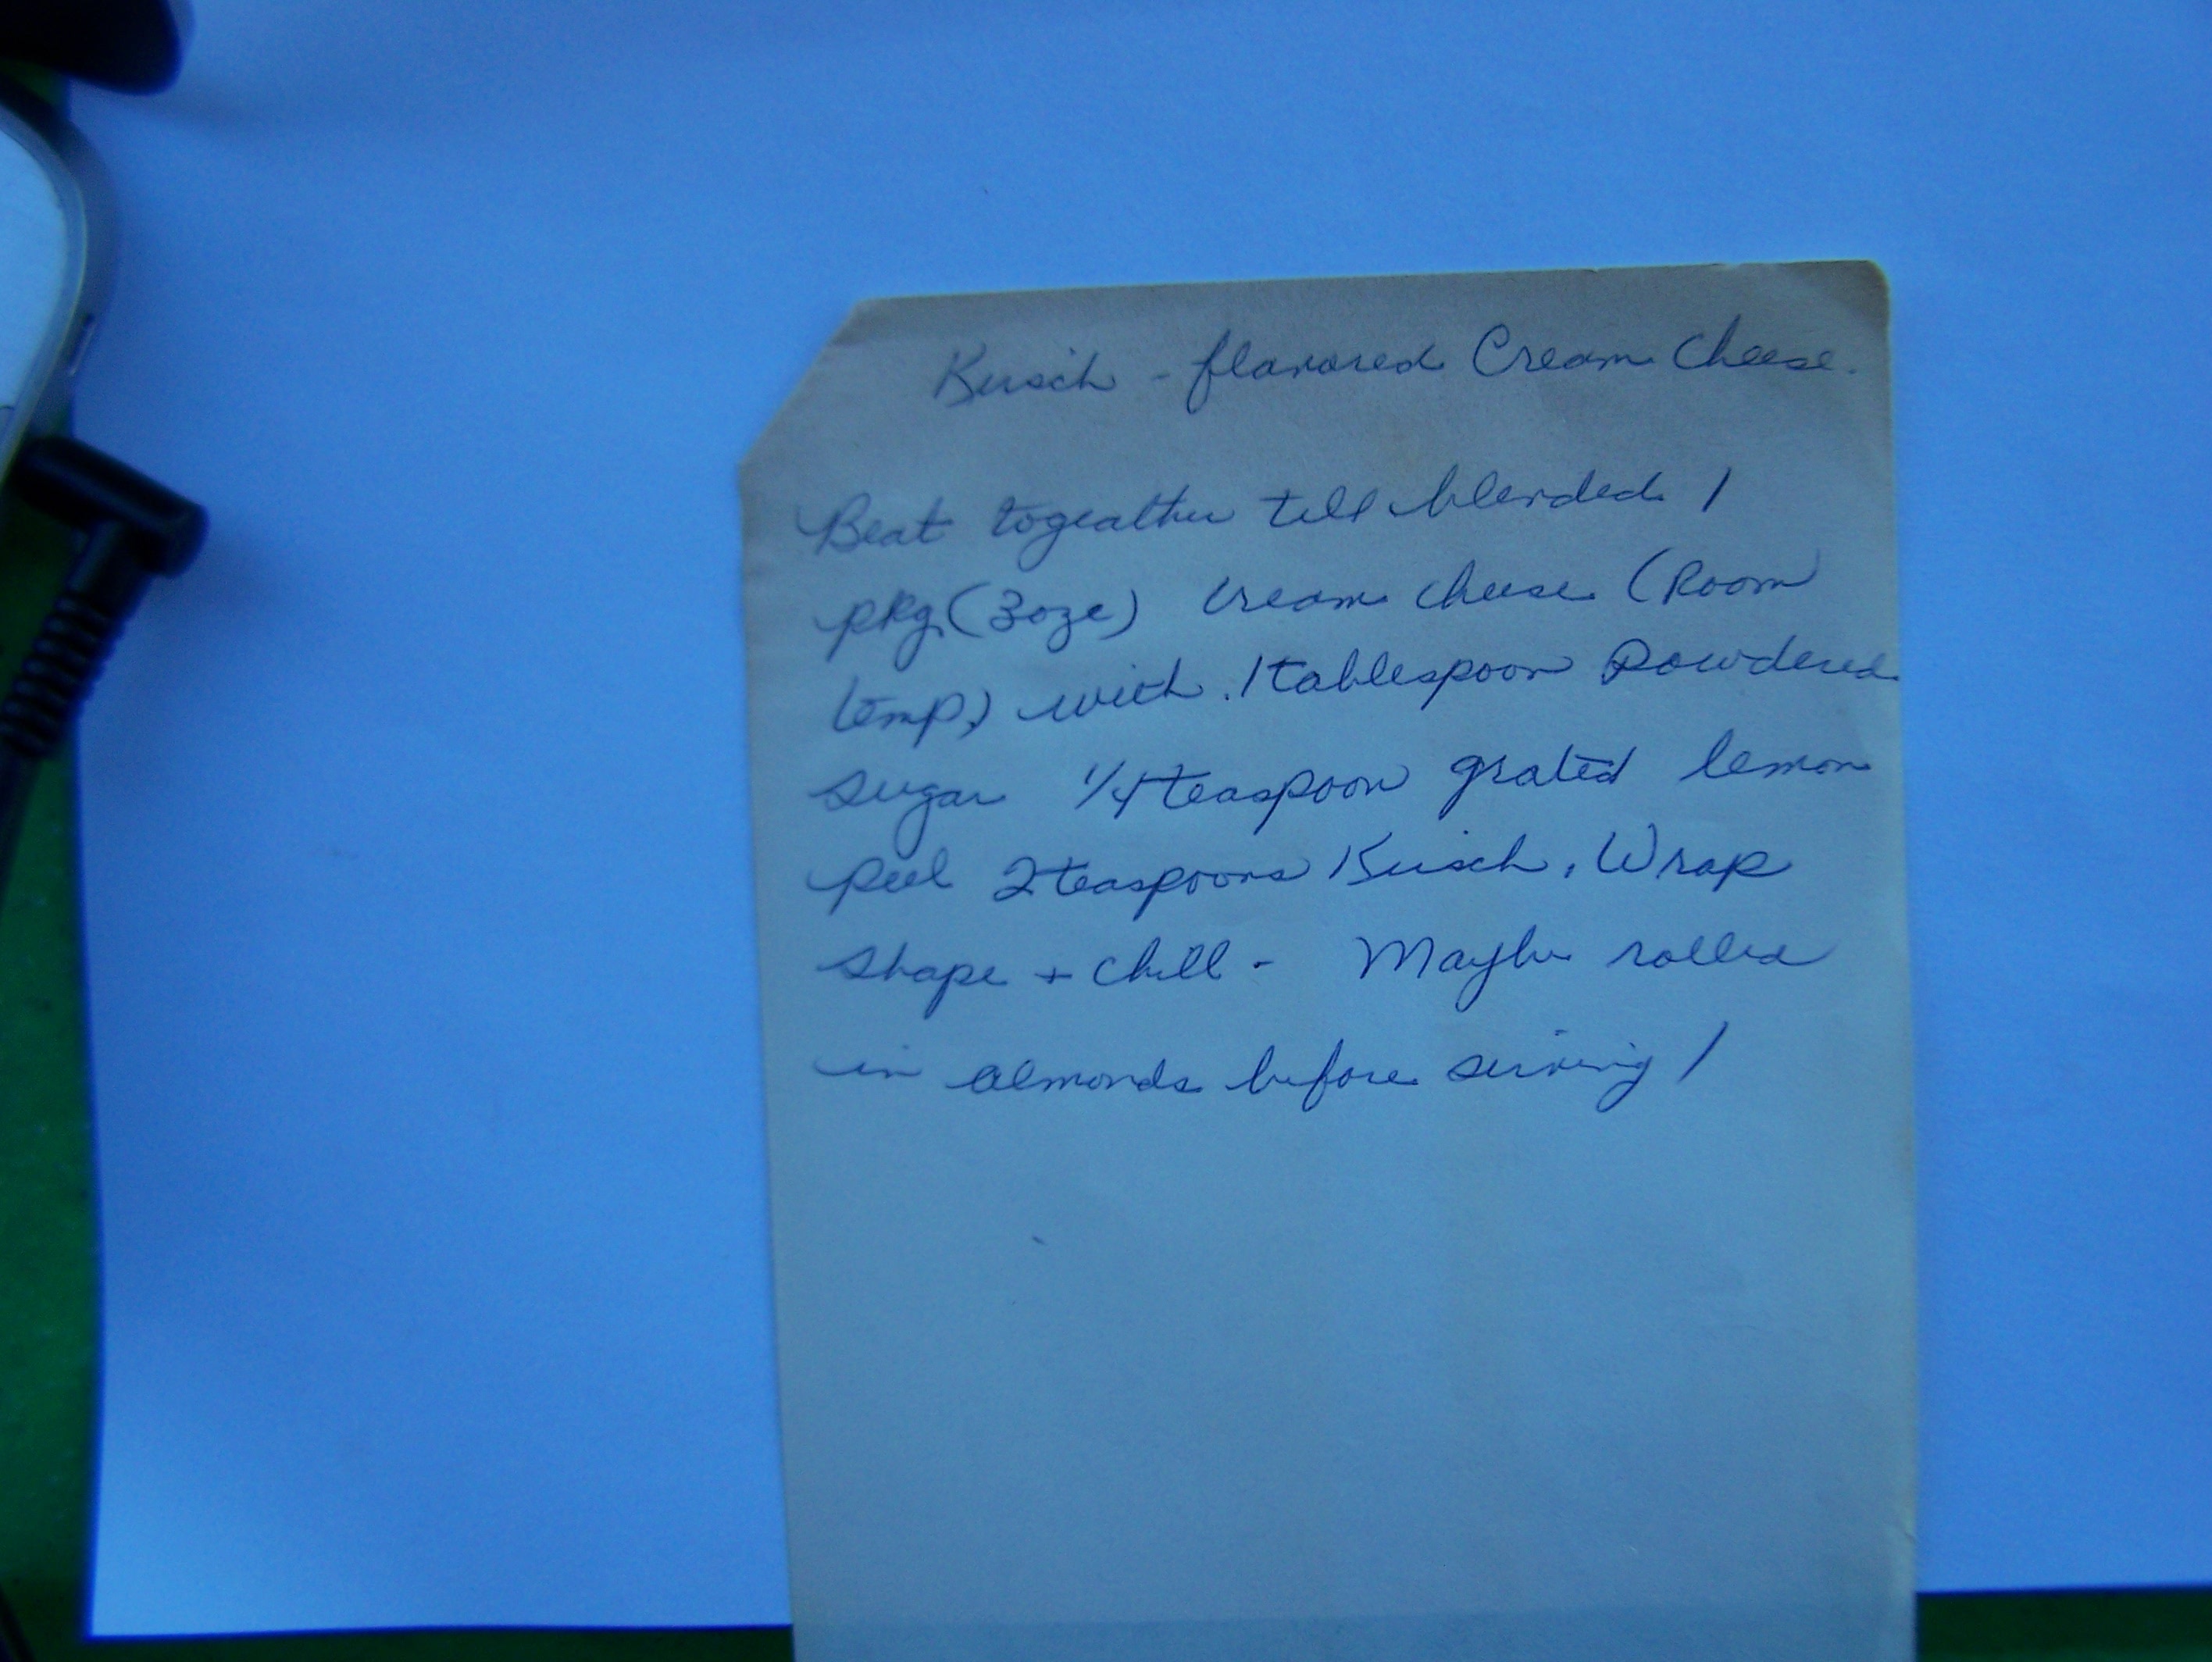 Kirsch - flavored Cream Cheese.
Beat togeather till blended 1
pkg. (3oze) cream cheese (Room
temp,) with 1 tablespoon Powdered
sugar 1/4 teaspoon grated lemon
peel 2 teaspoons Kirsch, Wrap
shape + chill - Maybe rolled
in almonds before serving /